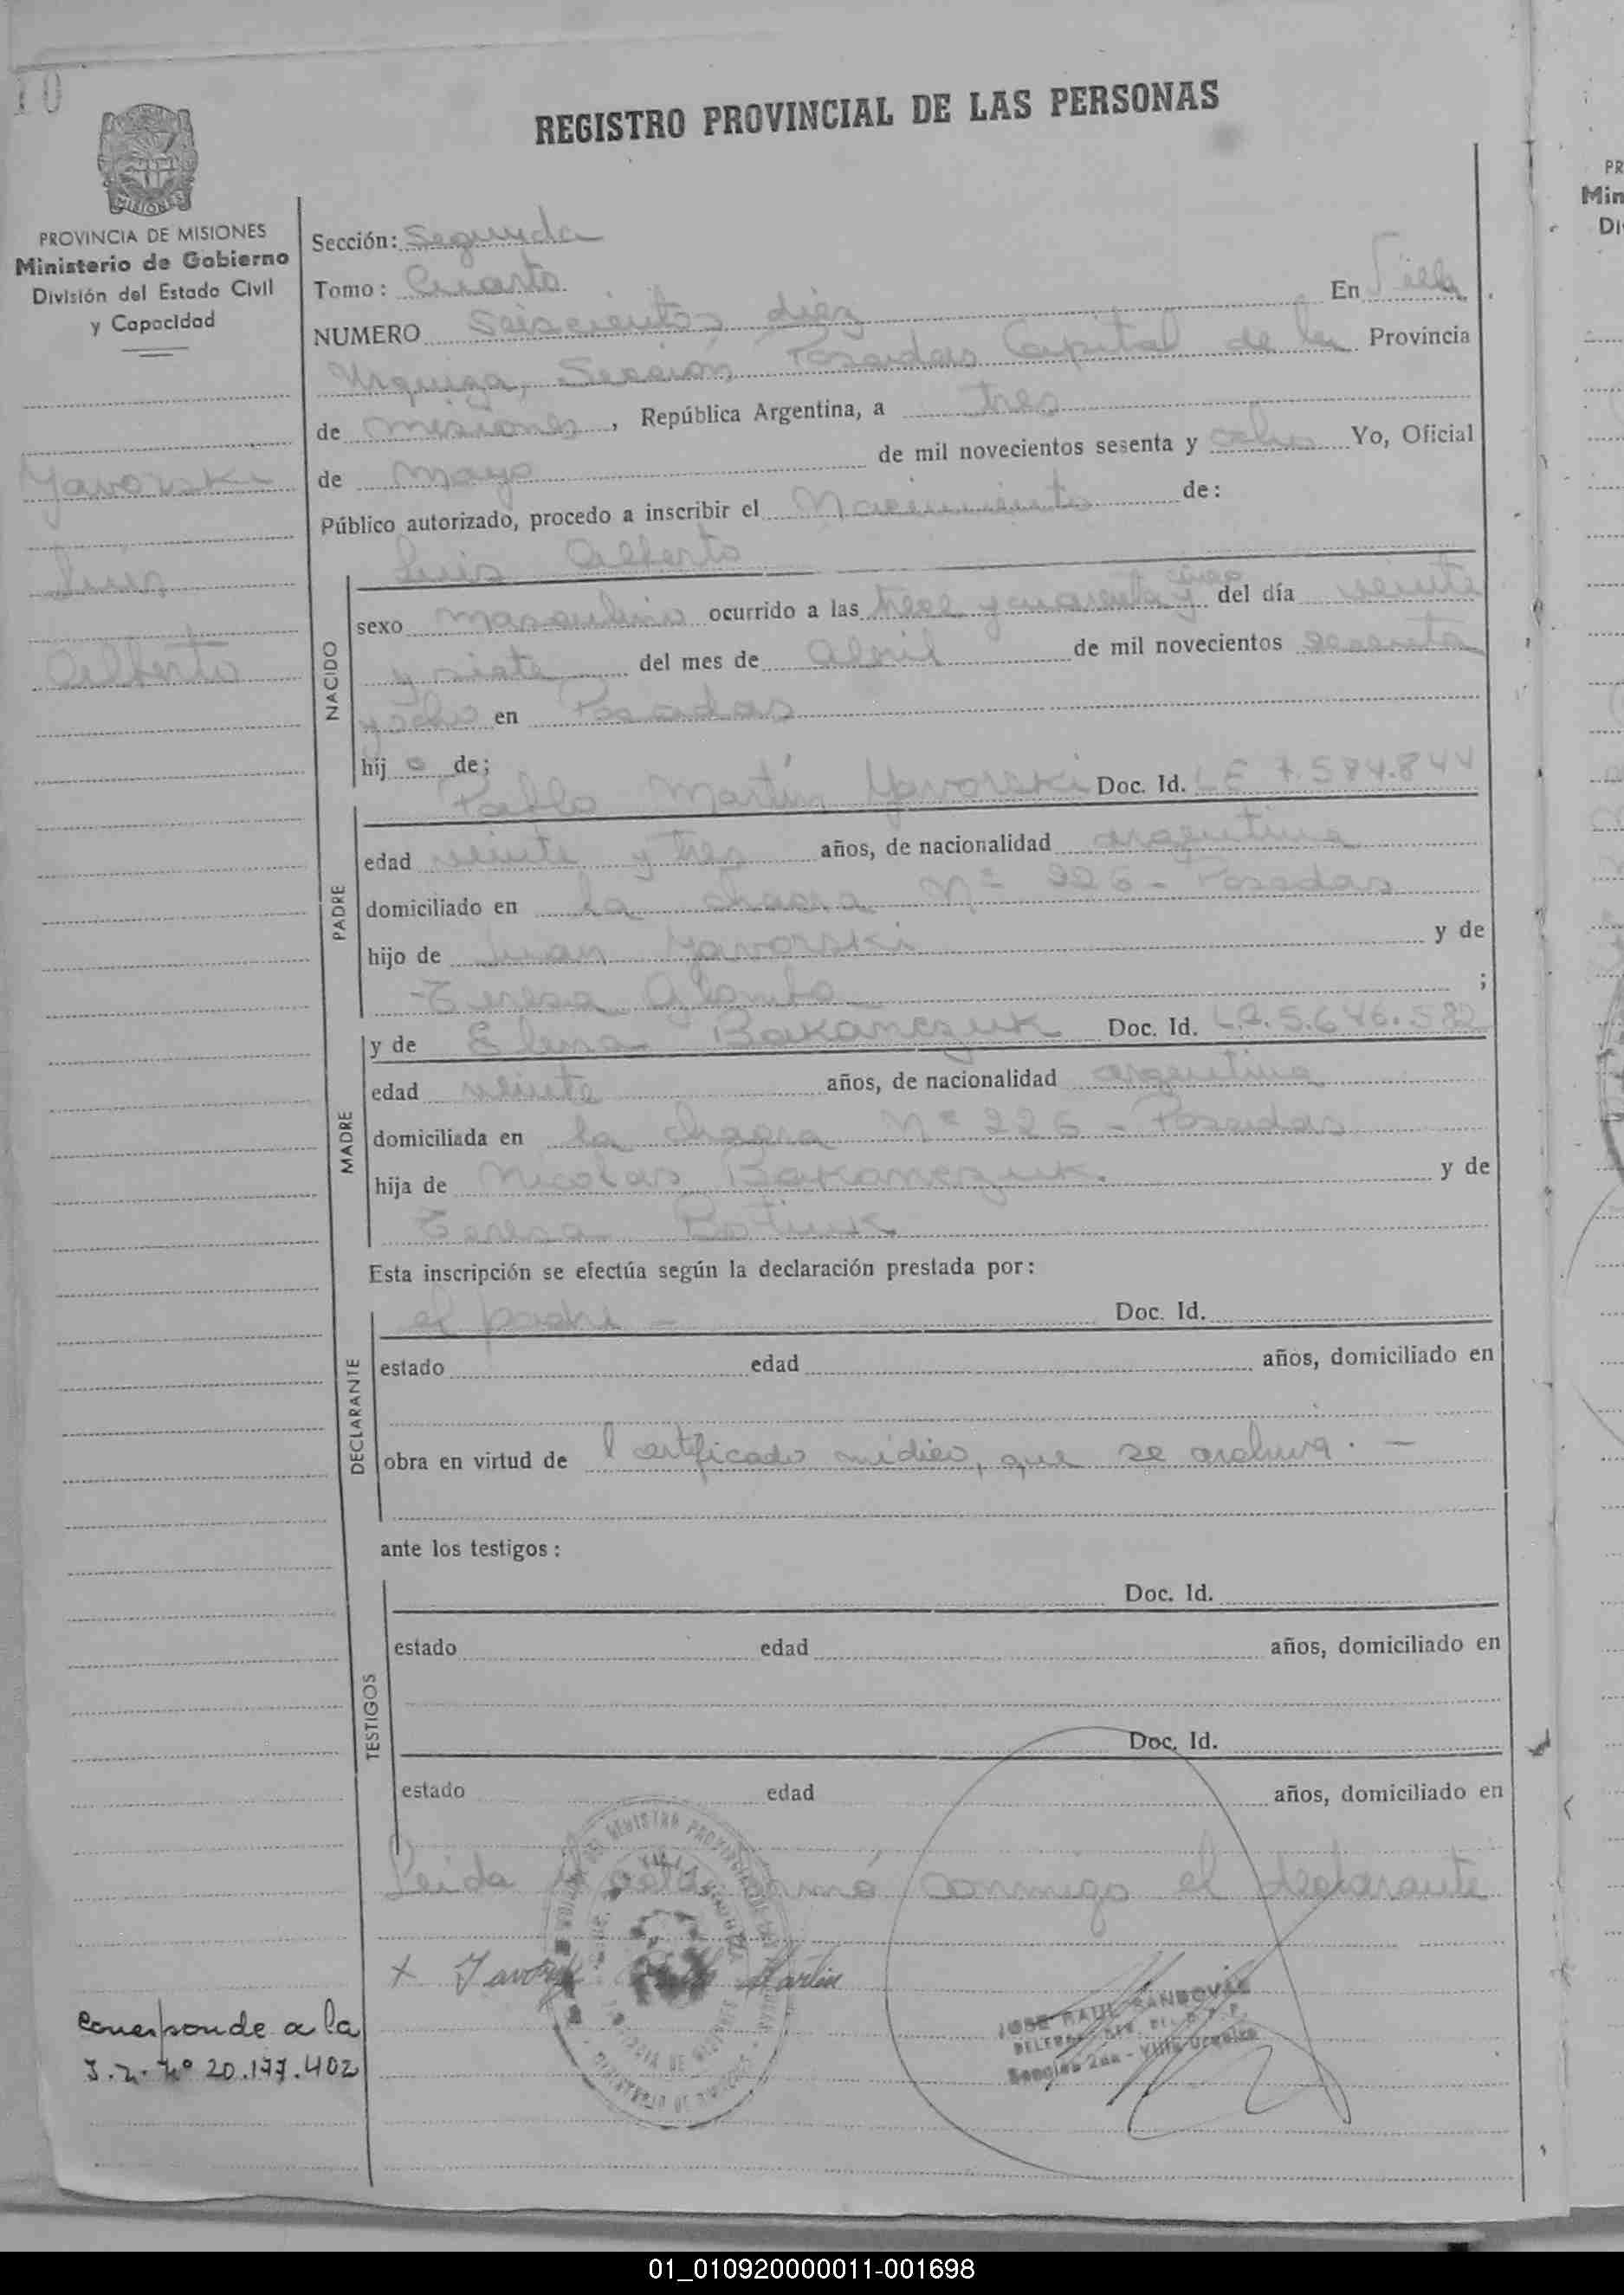 10
REGISTRO PROVINCIAL DE LAS PERSONAS
MISIONES
PROVINCIA DE MISIONES
Ministerio de Gobierno
División del Estado Civil
y Capacidad
Yavorski
Luis
Alberto
Sección: Segunda
Tomo: Cuarto
NUMERO Seiscientos diéz En Villa
Urquiza, Sección, Posadas Capital de la Provincia
de Misiones, República Argentina, a tres
de Mayo de mil novecientos sesenta y ocho Yo, Oficial
Público autorizado, procedo a inscribir el Nacimiento de:
Luis Alberto
NACIDO
sexo masculino ocurrido a las trece y cuarenta y cinco del día veinte
y siete del mes de Abril de mil novecientos sesenta
y ocho en Posadas
hijo de;
PADRE
Pablo Martín Yavorski Doc. Id. LE 7.584.844
edad veinte y tres años, de nacionalidad argentina
domiciliado en la chacra Nº 226 - Posadas
hijo de Juan Yavorski y de
Teresa ;
MADRE
y de Elena Bakanczuk Doc. Id. L.C. 5.646.582
edad veinte años, de nacionalidad argentina
domiciliada en la chacra Nº 226 - Posadas
hija de Nicolas Bakanczuk. y de
Teresa Botiuk
Esta inscripción se efectúa según la declaración prestada por:
DECLARANTE
el padre - Doc. Id.
estado edad años, domiciliado en
obra en virtud de l certificado médico, que se archiva. -
ante los testigos:
TESTIGOS
Doc. Id.
estado edad años, domiciliado en
Doc. Id.
estado edad años, domiciliado en
Leida el acta, firmó conmigo el declarante
x Martin
JOSE RAUL SANDOVAL
Sección 2da - Villa Urquiza
Corresponde a la
20.177.402
PR
Min
Di
01_010920000011-001698